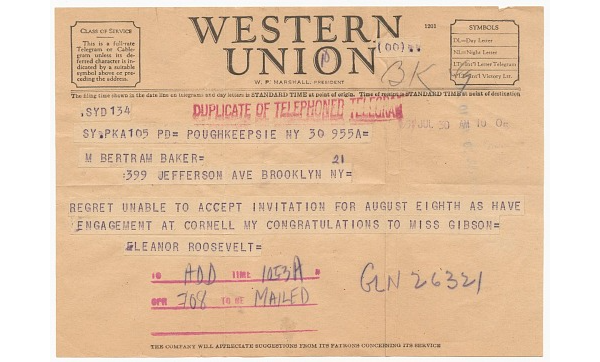 WESTERN
UNION
1201
CLASS OF SERVICE
This is a full-rate
Telegram or Cable-
gram unless its de-
ferred character is in-
dicated by a suitable
symbol above or pre-
ceding the address.
W. P. MARSHALL, PRESIDENT
(00)
BK
SYMBOLS
DL=Day Letter
NL=Night Letter
LT=Int'l Letter Telegram
VLT=Int'l Victory Ltr.
The filing time shown in the date line on telegrams and day letters is STANDARD TIME at point of origin. Time of receipt is STANDARD TIME at point of destination
.SYD134
DUPLICATE OF TELEPHONED TELEGRAM
SY.PKA105 PD= POUGHKEEPSIE NY 30 955A=
JUL 30 AM 10
M BERTRAM BAKER=
21
:399 JEFFERSON AVE BROOKLYN NY=
REGRET UNABLE TO ACCEPT INVITATION FOR AUGUST EIGHTH AS HAVE
ENGAGEMENT AT CORNELL MY CONGRATULATIONS TO MISS GIBSON=
ELEANOR ROOSEVELT=
TO ADD TIME 1053A
OPR 708 TO BE MAILED
GLN 26321
THE COMPANY WILL APPRECIATE SUGGESTIONS FROM ITS PATRONS CONCERNING ITS SERVICE